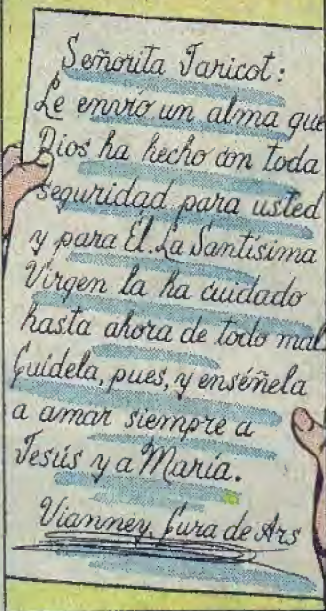 Señorita Jaricot:
Le envío un alma que
Dios ha hecho con toda
seguridad para usted
y para Él. La Santísima
Virgen la ha cuidado
hasta ahora de todo mal.
Cuídela, pues, y enséñela
a amar siempre a
Jesús y a María.
Vianney, Cura de Ars